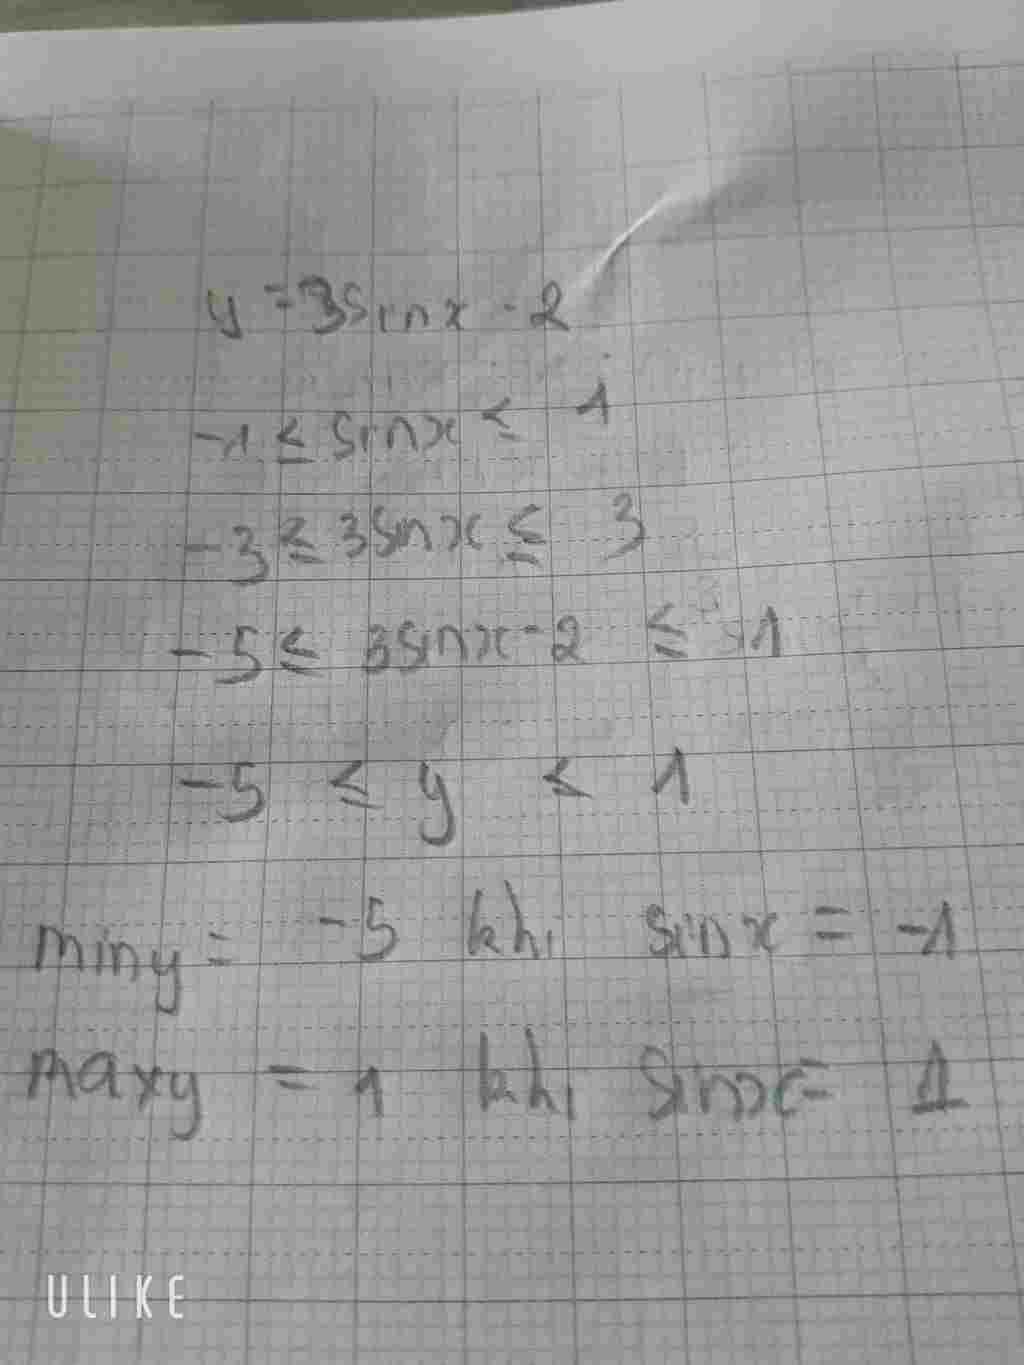 y = 3sinx - 2
-1 ≤ sinx ≤ 1
-3 ≤ 3sinx ≤ 3
-5 ≤ 3sinx - 2 ≤ 1
-5 ≤ y ≤ 1
miny = -5 khi sinx = -1
maxy = 1 khi sinx = 1
ULIKE